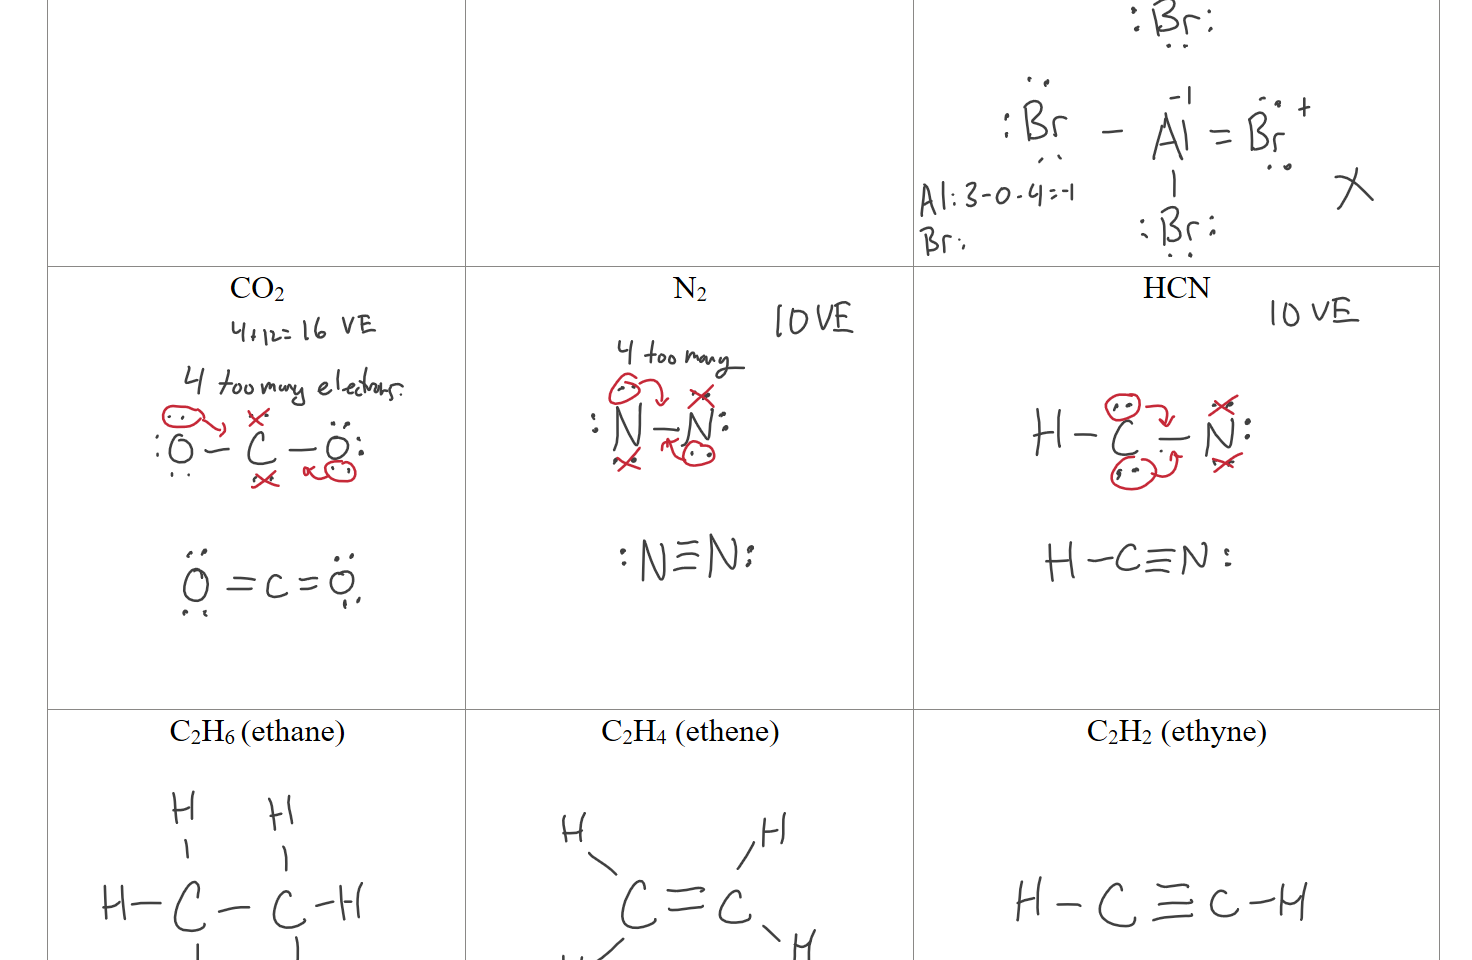 :Br:
:Br – Al = Br +
-1
Al: 3-0-4=-1
Br:
:Br:
X
CO₂
4+12=16 VE
4 too many electrons.
:O – C – O:
O = C = O
N₂
10 VE
4 too many
:N – N:
:N≡N:
HCN
10 VE
H – C – N:
H – C≡N:
C₂H₆ (ethane)
H H
H – C – C – H
C₂H₄ (ethene)
H H
C = C
H H
C₂H₂ (ethyne)
H – C ≡ C – H